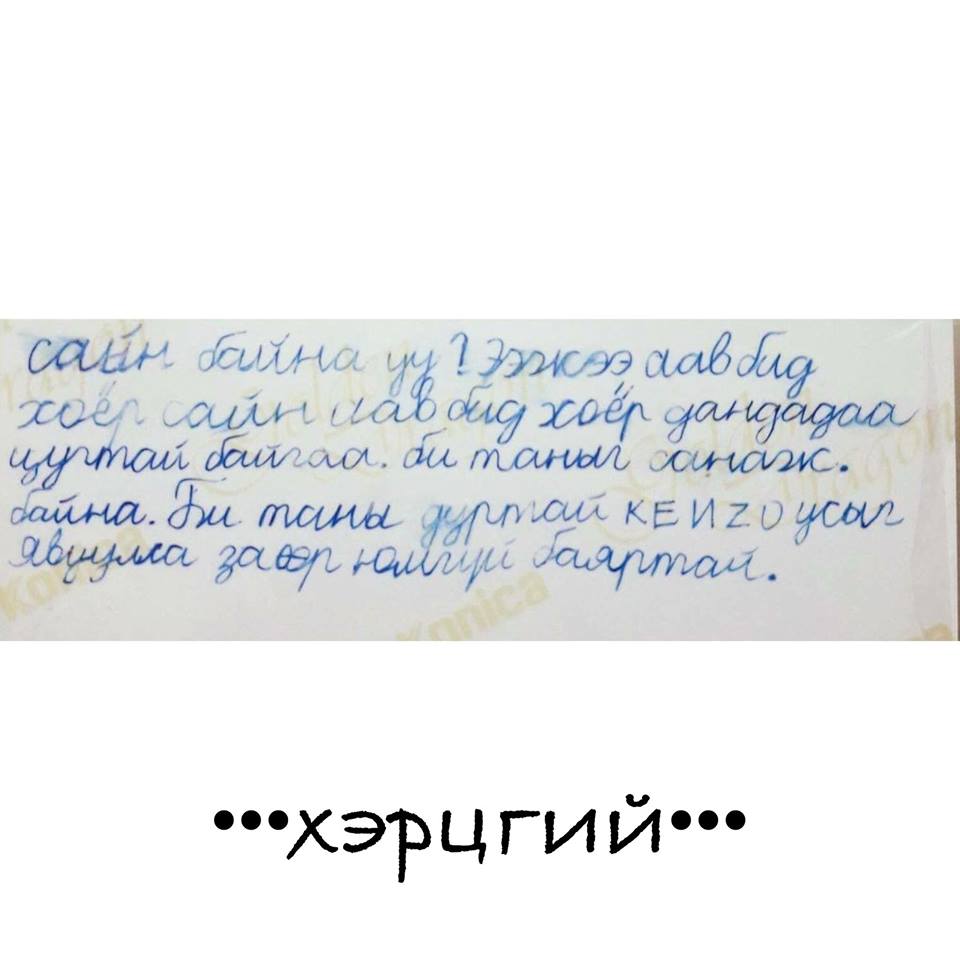 сайн байна уу? Ээжээ аав бид
хоёр сайн аав бид хоёр дандадаа
цугтай байгаа. би таныг санаж.
байна. Би таны дуртай KENZO усыг
явуулла заөөр юмгүй баяртай.
Konica
Konica
•••хэрцгий•••